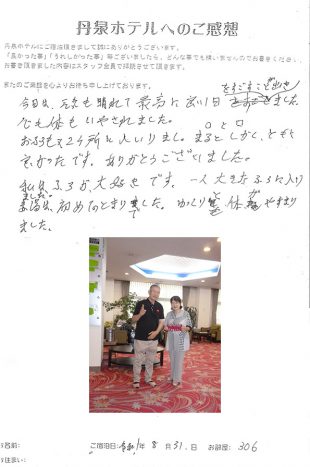 丹泉ホテルへのご感想
丹泉ホテルにご宿泊頂きまして誠にありがとうございます。
「良かった事」「うれしかった事」等ございましたら、どんな事でも構いませんのでお書きください。
お書き頂きました内容はスタッフ全員で拝読させて頂きます。
またのご来館を心よりお待ち申し上げております。
をすごすこと出き
今日は、天気も晴れて最高に良い1日
ました。
心も体もいやされました。
おふろも2ケ所に入いりまし。まると しかく、ともに
よかったです。ありがとうございました。
私はふろが大好きです。一人大きなふろに入り
ました。
温泉 初めてとまりました。ゆっくり 体
ました。
お名前:
ご宿泊日:令和1年 8月31日
お部屋: 306
お住まい: